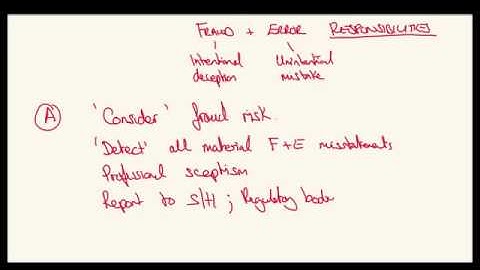 FRAUD + ERROR RESPONSIBILITIES
Intentional deception
Unintentional mistake
A 'Consider' fraud risk.
'Detect' all material F+E misstatements
Professional sceptism
Report to S/H ; Regulatory bode